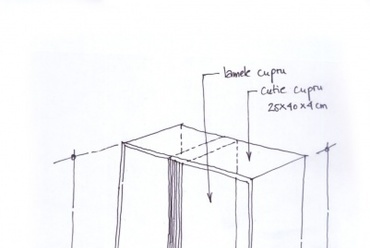 lamele cupru
cutie cupru
25x40x4cm